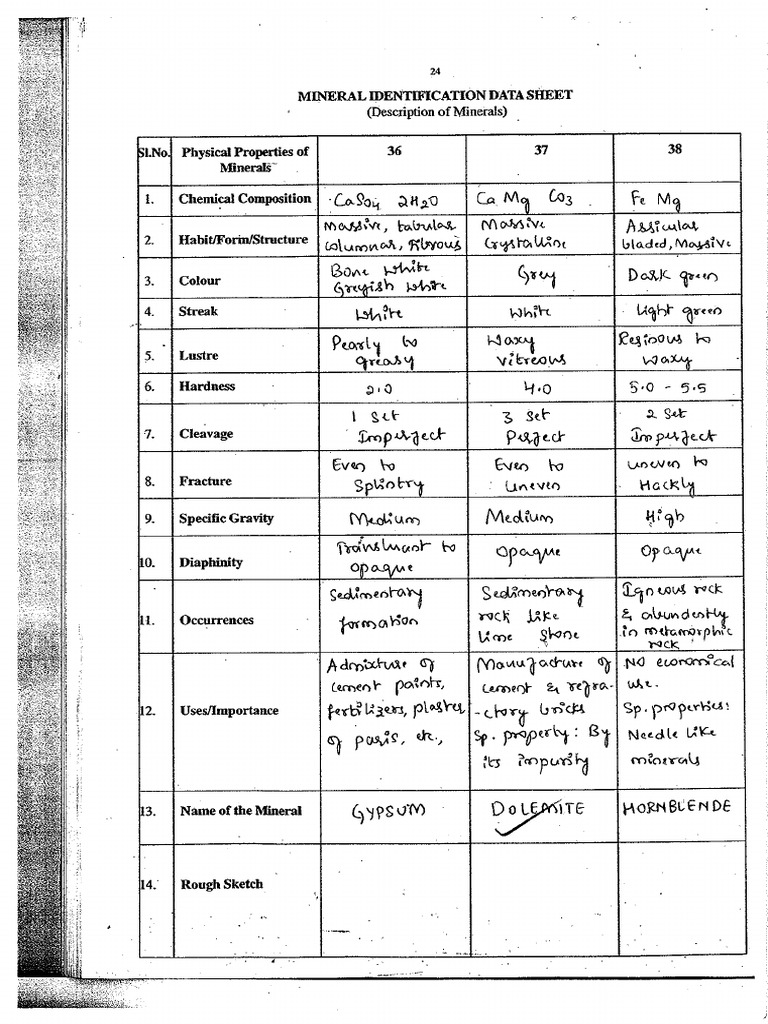 24
MINERAL IDENTIFICATION DATA SHEET
(Description of Minerals)
Sl.No. Physical Properties of Minerals 36 37 38
1. Chemical Composition CaSo4 2H2O Ca Mg CO3 Fe Mg
2. Habit/Form/Structure Massive, tabular columnar, Fibrous Massive Crystalline Assicular bladed, Massive
3. Colour Bone white Greyish white Grey Dark green
4. Streak White White Light green
5. Lustre Pearly to greasy Waxy Vitreous Resinous to waxy
6. Hardness 2.0 4.0 5.0 - 5.5
7. Cleavage 1 Set Imperfect 3 Set Perfect 2 Set Imperfect
8. Fracture Even to Splintry Even to Uneven uneven to Hackly
9. Specific Gravity Medium Medium High
10. Diaphinity Transluant to Opaque Opaque Opaque
11. Occurrences Sedimentary formation Sedimentary rock like lime stone Igneous rock & abundestly in metamorphic rock
12. Uses/Importance Admixture of cement paints, fertilizers, plaster of paris, etc., Manufacture of cement & refra- -ctory bricks Sp. property: By its impurity No economical use. Sp. properties: Needle like minerals
13. Name of the Mineral GYPSUM DOLEMITE HORNBLENDE
14. Rough Sketch